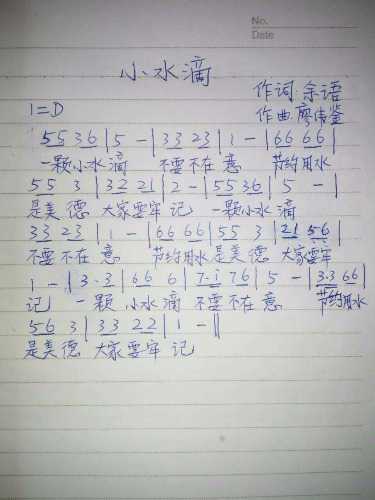 No.
Date
小水滴
作词:余语
1=D
作曲:廖伟鉴
55 36|5 -|33 23|1 -|66 66|
一颗小水滴 不要不在意 节约用水
55 3|32 21|2 -|55 36|5 -|
是美德 大家要牢记 一颗小水滴
33 23|1 -|66 66|55 3|21 56|
不要不在意 节约用水是美德 大家要牢
1 -|3·3|66 6|7·i 76|5 -|3·3 66|
记 一颗小水滴 不要不在意 节约用水
56 3|33 22|1 -||
是美德 大家要牢记